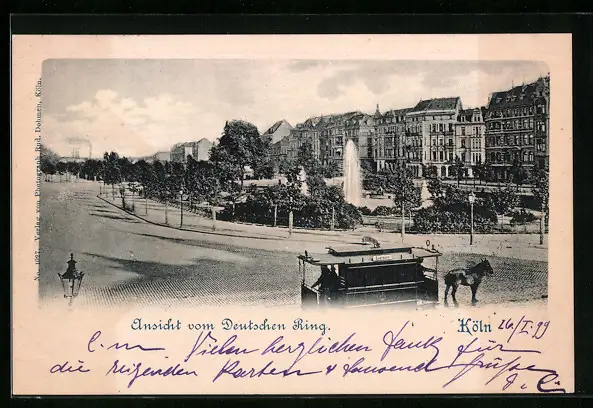 No. 1097. Verlag von Photograph Rud. Dohmen, Köln.
Ansicht vom Deutschen Ring.
Köln 26/I 99
Vielen herzlichen Dank für
die reizenden Karten & tausend Grüße